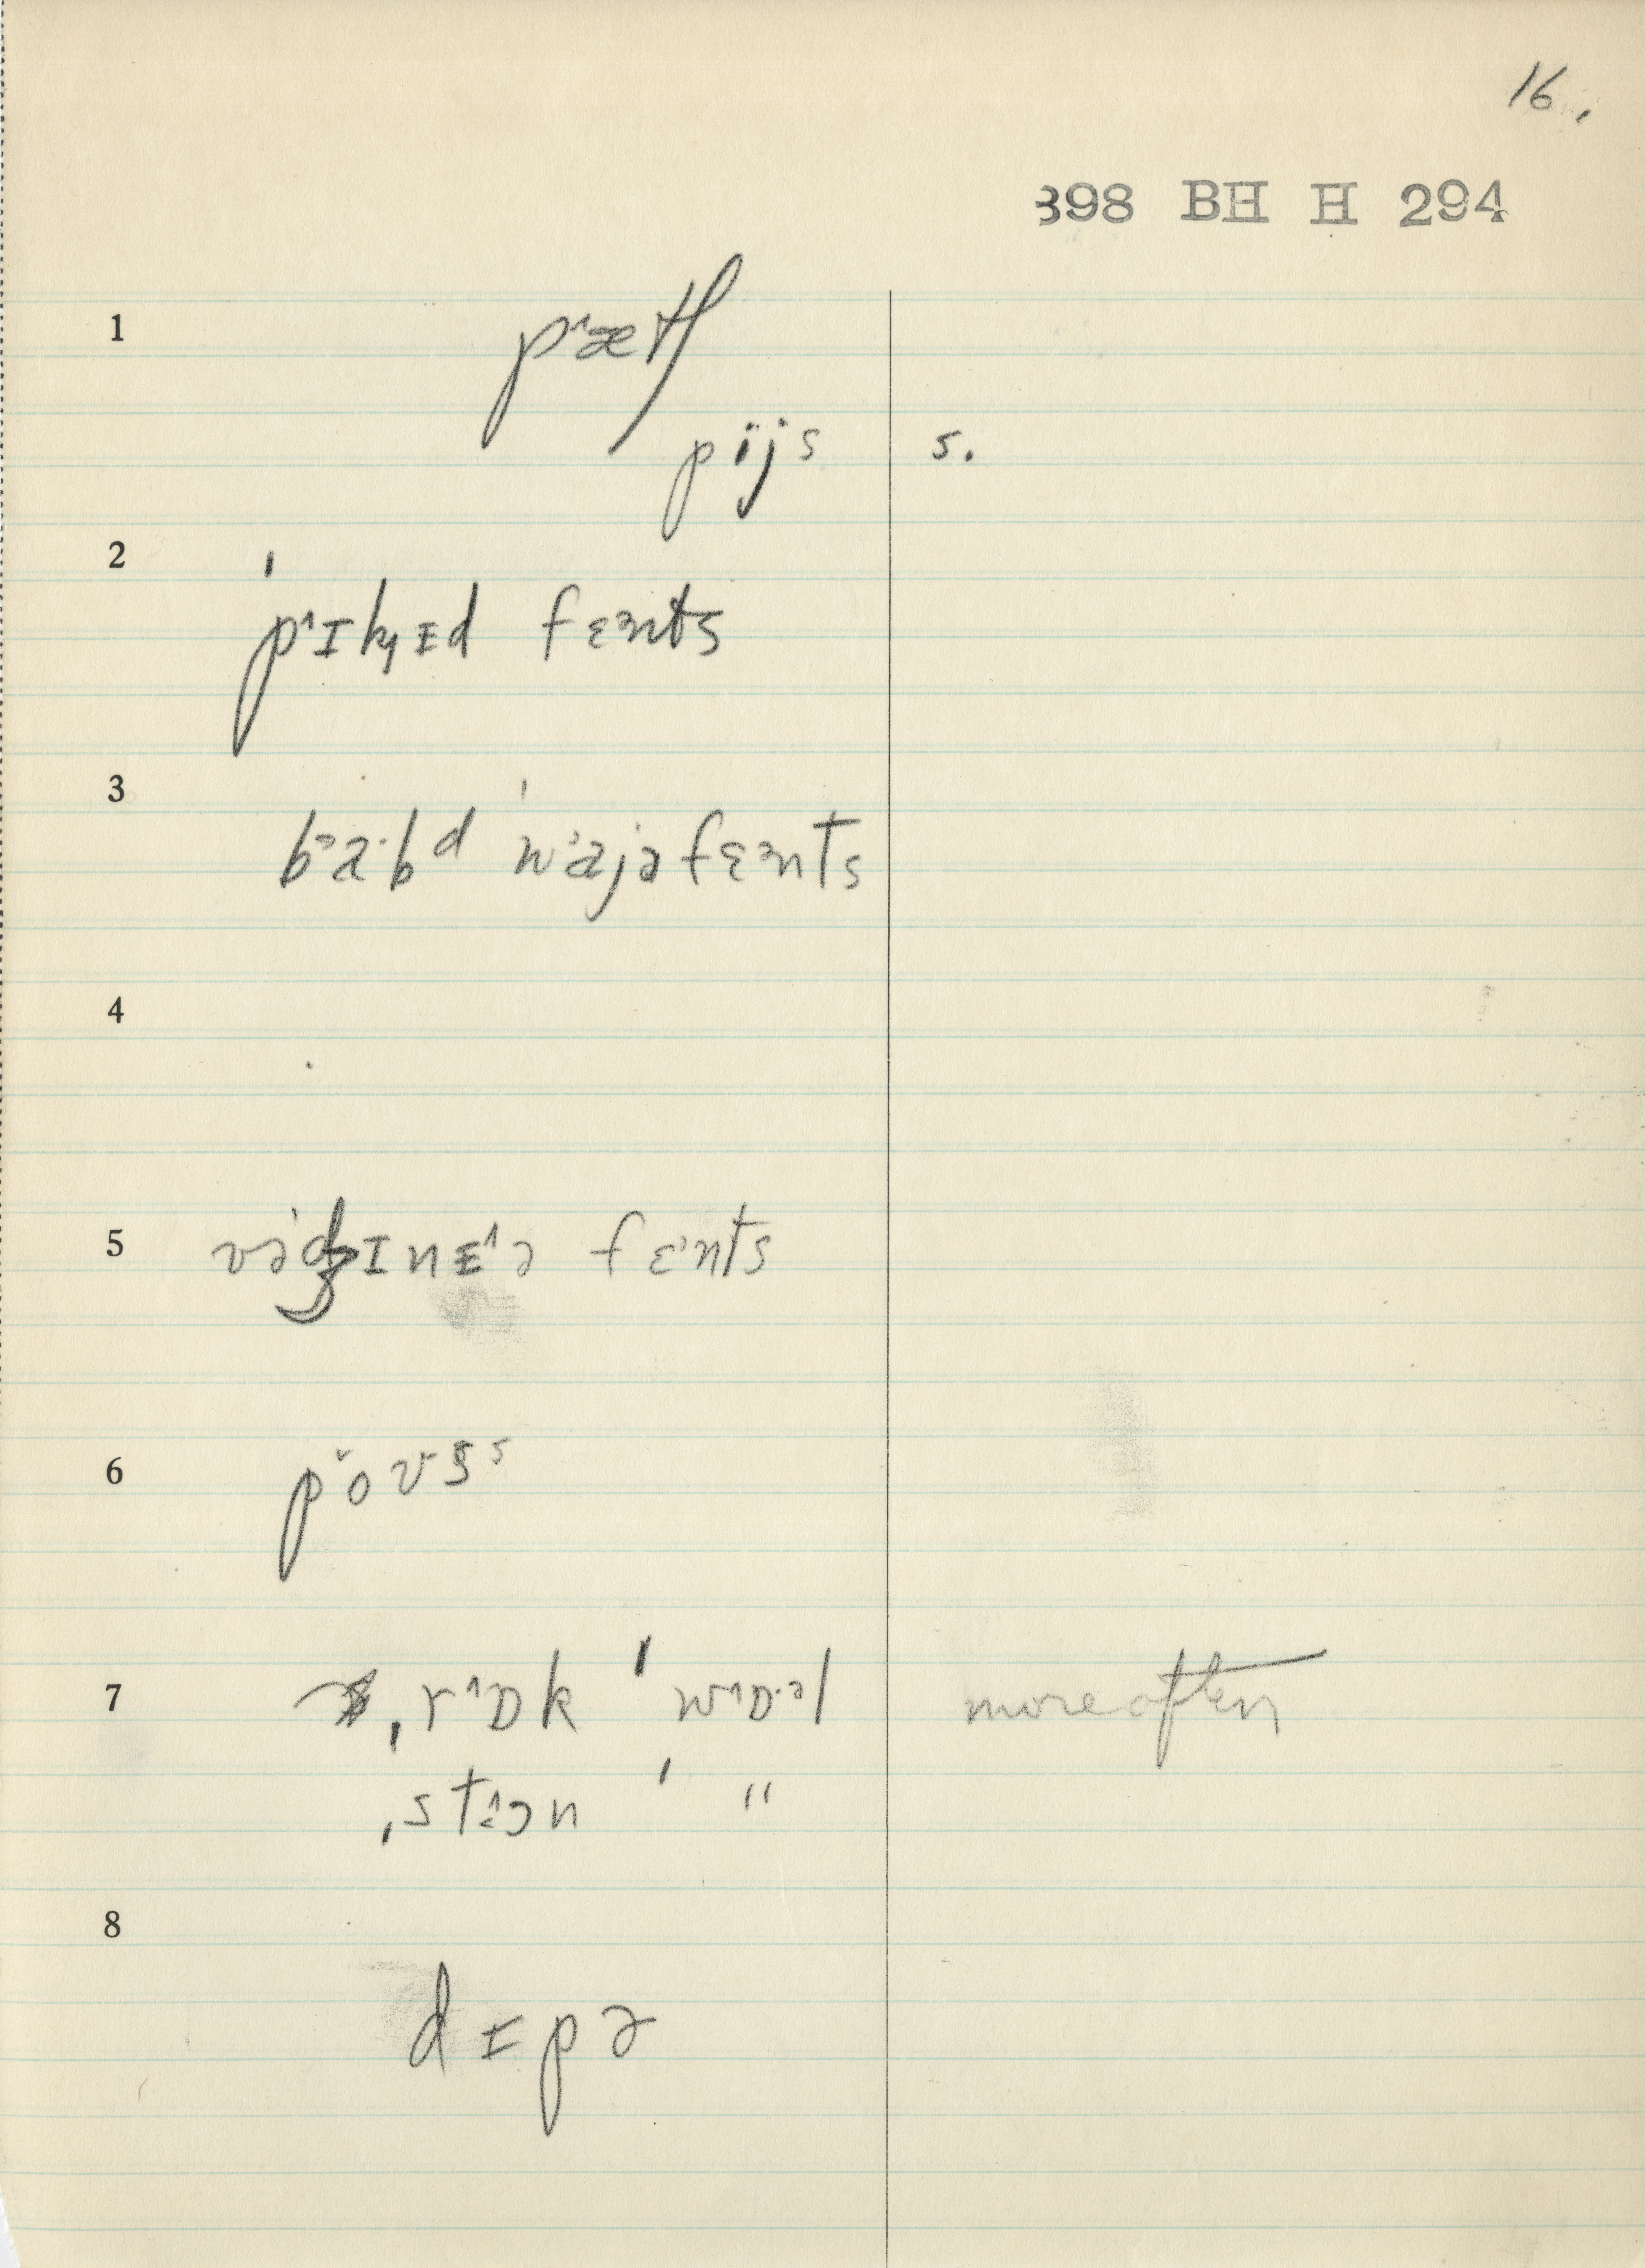 16.
398 BH H 294
1 p˄ætʃ
pïjs s.
2 ˈp˄ɪk̡ɪd fɛ˃nts
3 b˃a·bᵈ ˈwa˃jəfɛ˃nts
4
5 vədʒɪnɪ˄ə fɛ˃nts
6 po˅ʊsˢ
7 ˌr˄ɒk ˈw˄ɒ·ᵊl more often
ˌst˄ɔn ˈ "
8 dɪpə